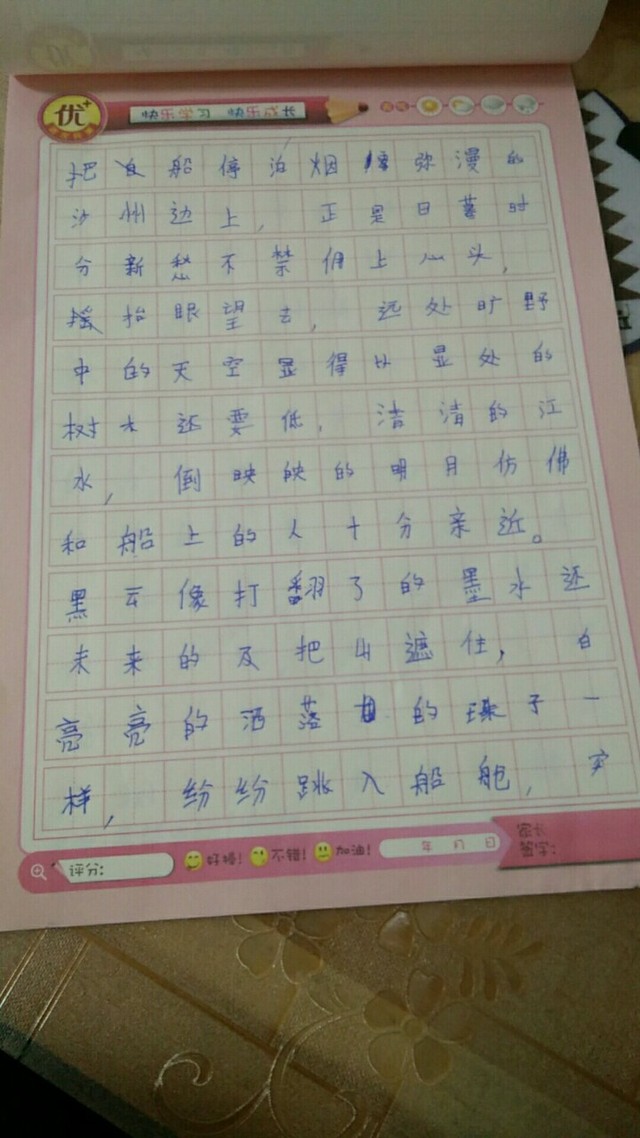 优+
快乐学习 快乐成长
把船停泊烟雾弥漫的
沙州边上, 正是日暮时
分新愁不禁佣上心头,
抬眼望去, 远处旷野
中的天空显得比显处的
树木还要低, 洁清的江
水, 倒映映的明月仿佛
和船上的人十分亲近。
黑云像打翻了的墨水还
未来的及把山遮住, 白
亮亮的洒落的珠子一
样, 纷纷跳入船舱, 突
评分:
好棒! 不错! 加油!
年 月 日
家长
签字: